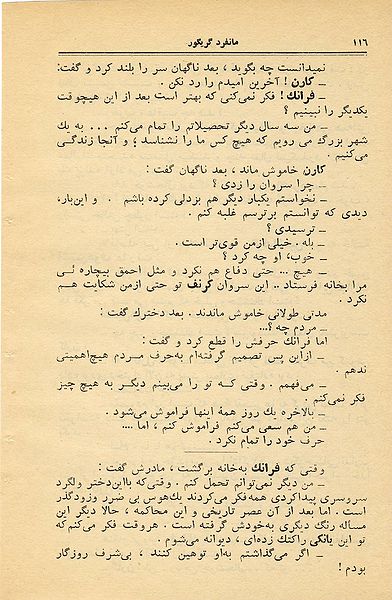 ۱۱۶ مانفرد گریگور
نمیدانست چه بگوید ، بعد ناگهان سر را بلند کرد و گفت:
ــ کارن ! آخرین امیدم را رد نکن .
ــ فرانك! فکر نمی‌کنی که بهتر است بعد از این هیچوقت
یکدیگر را نبینیم ؟
ــ من سه سال دیگر تحصیلاتم را تمام می‌کنم ... به یك
شهر بزرگ می رویم که هیچ کس ما را نشناسد ؛ و آنجا زندگی
می‌کنیم .
کارن خاموش ماند ، بعد ناگهان گفت :
ــ چرا سروان را زدی ؟
ــ نخواستم یکبار دیگر هم بزدلی کرده باشم . و این‌بار،
دیدی که توانستم برترسم غلبه کنم .
ــ ترسیدی ؟
ــ بله . خیلی ازمن قوی‌تر است .
ــ خوب، او چه کرد ؟
ــ هیچ ... حتی دفاع هم نکرد و مثل احمق بیچاره ئی
مرا بخانه فرستاد .. این سروان کرنف تو حتی ازمن شکایت هم
نکرد .
مدتی طولانی خاموش ماندند . بعد دخترك گفت :
ــ مردم چه ؟...
اما فرانك حرفش را قطع کرد و گفت :
ــ ازاین پس تصمیم گرفته‌ام به‌حرف مردم هیچ‌اهمیتی
ندهم .
ــ می‌فهمم . وقتی که تو را می‌بینم دیگر به هیچ چیز
فکر نمی‌کنم .
ــ بالاخره یك روز همهٔ اینها فراموش می‌شود .
ــ من هم سعی می‌کنم فراموش کنم ، اما ....
حرف خود را تمام نکرد .
وقتی که فرانك به‌خانه برگشت ، مادرش گفت :
ــ من دیگر نمی‌توانم تحمل کنم . وقتی‌که بااین‌دختر ولگرد
سروسری پیداکردی همه‌فکر می‌کردند یك‌هوس بی ضرر وزودگذر
است . اما بعد از آن عصر تاریخی و این محاکمه ، حالا دیگر این
مسأله رنگ دیگری به‌خودش گرفته است . هروقت فکر می‌کنم‌که
تو این یانکی راکتك زده‌ای ، دیوانه می‌شوم .
ــ اگر می‌گذاشتم به‌او توهین کنند ، بی‌شرف روزگار
بودم !